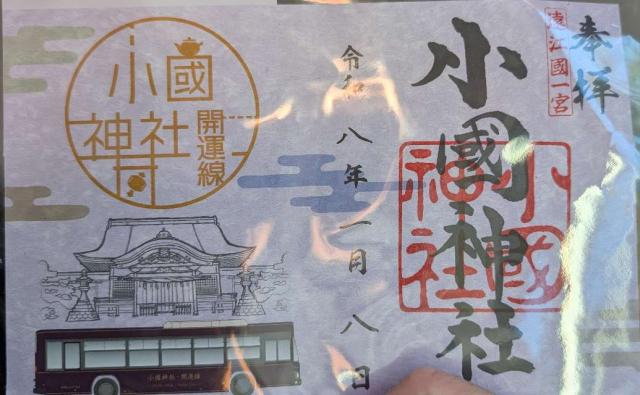 奉拝
遠江國一宮
小國神社
小國神社
令和八年一月八日
小國
神社
開運線
小國神社・開運線